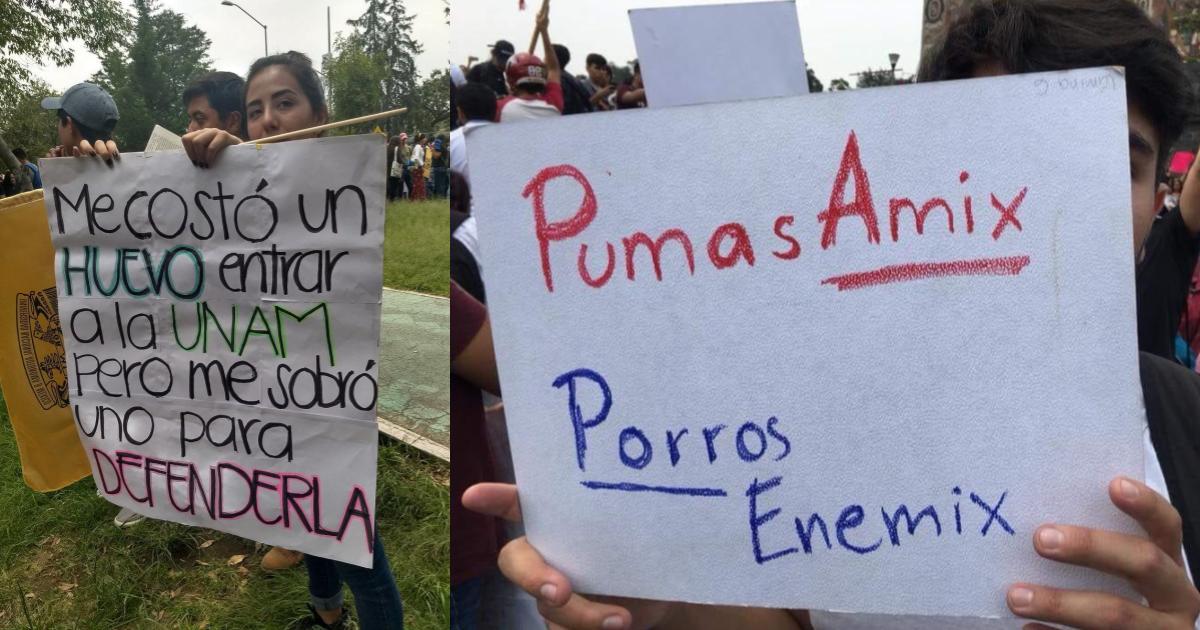 Me costó un
HUEVO entrar
a la UNAM
pero me sobró
uno para
DEFENDERLA
Pumas Amix
Porros
Enemix